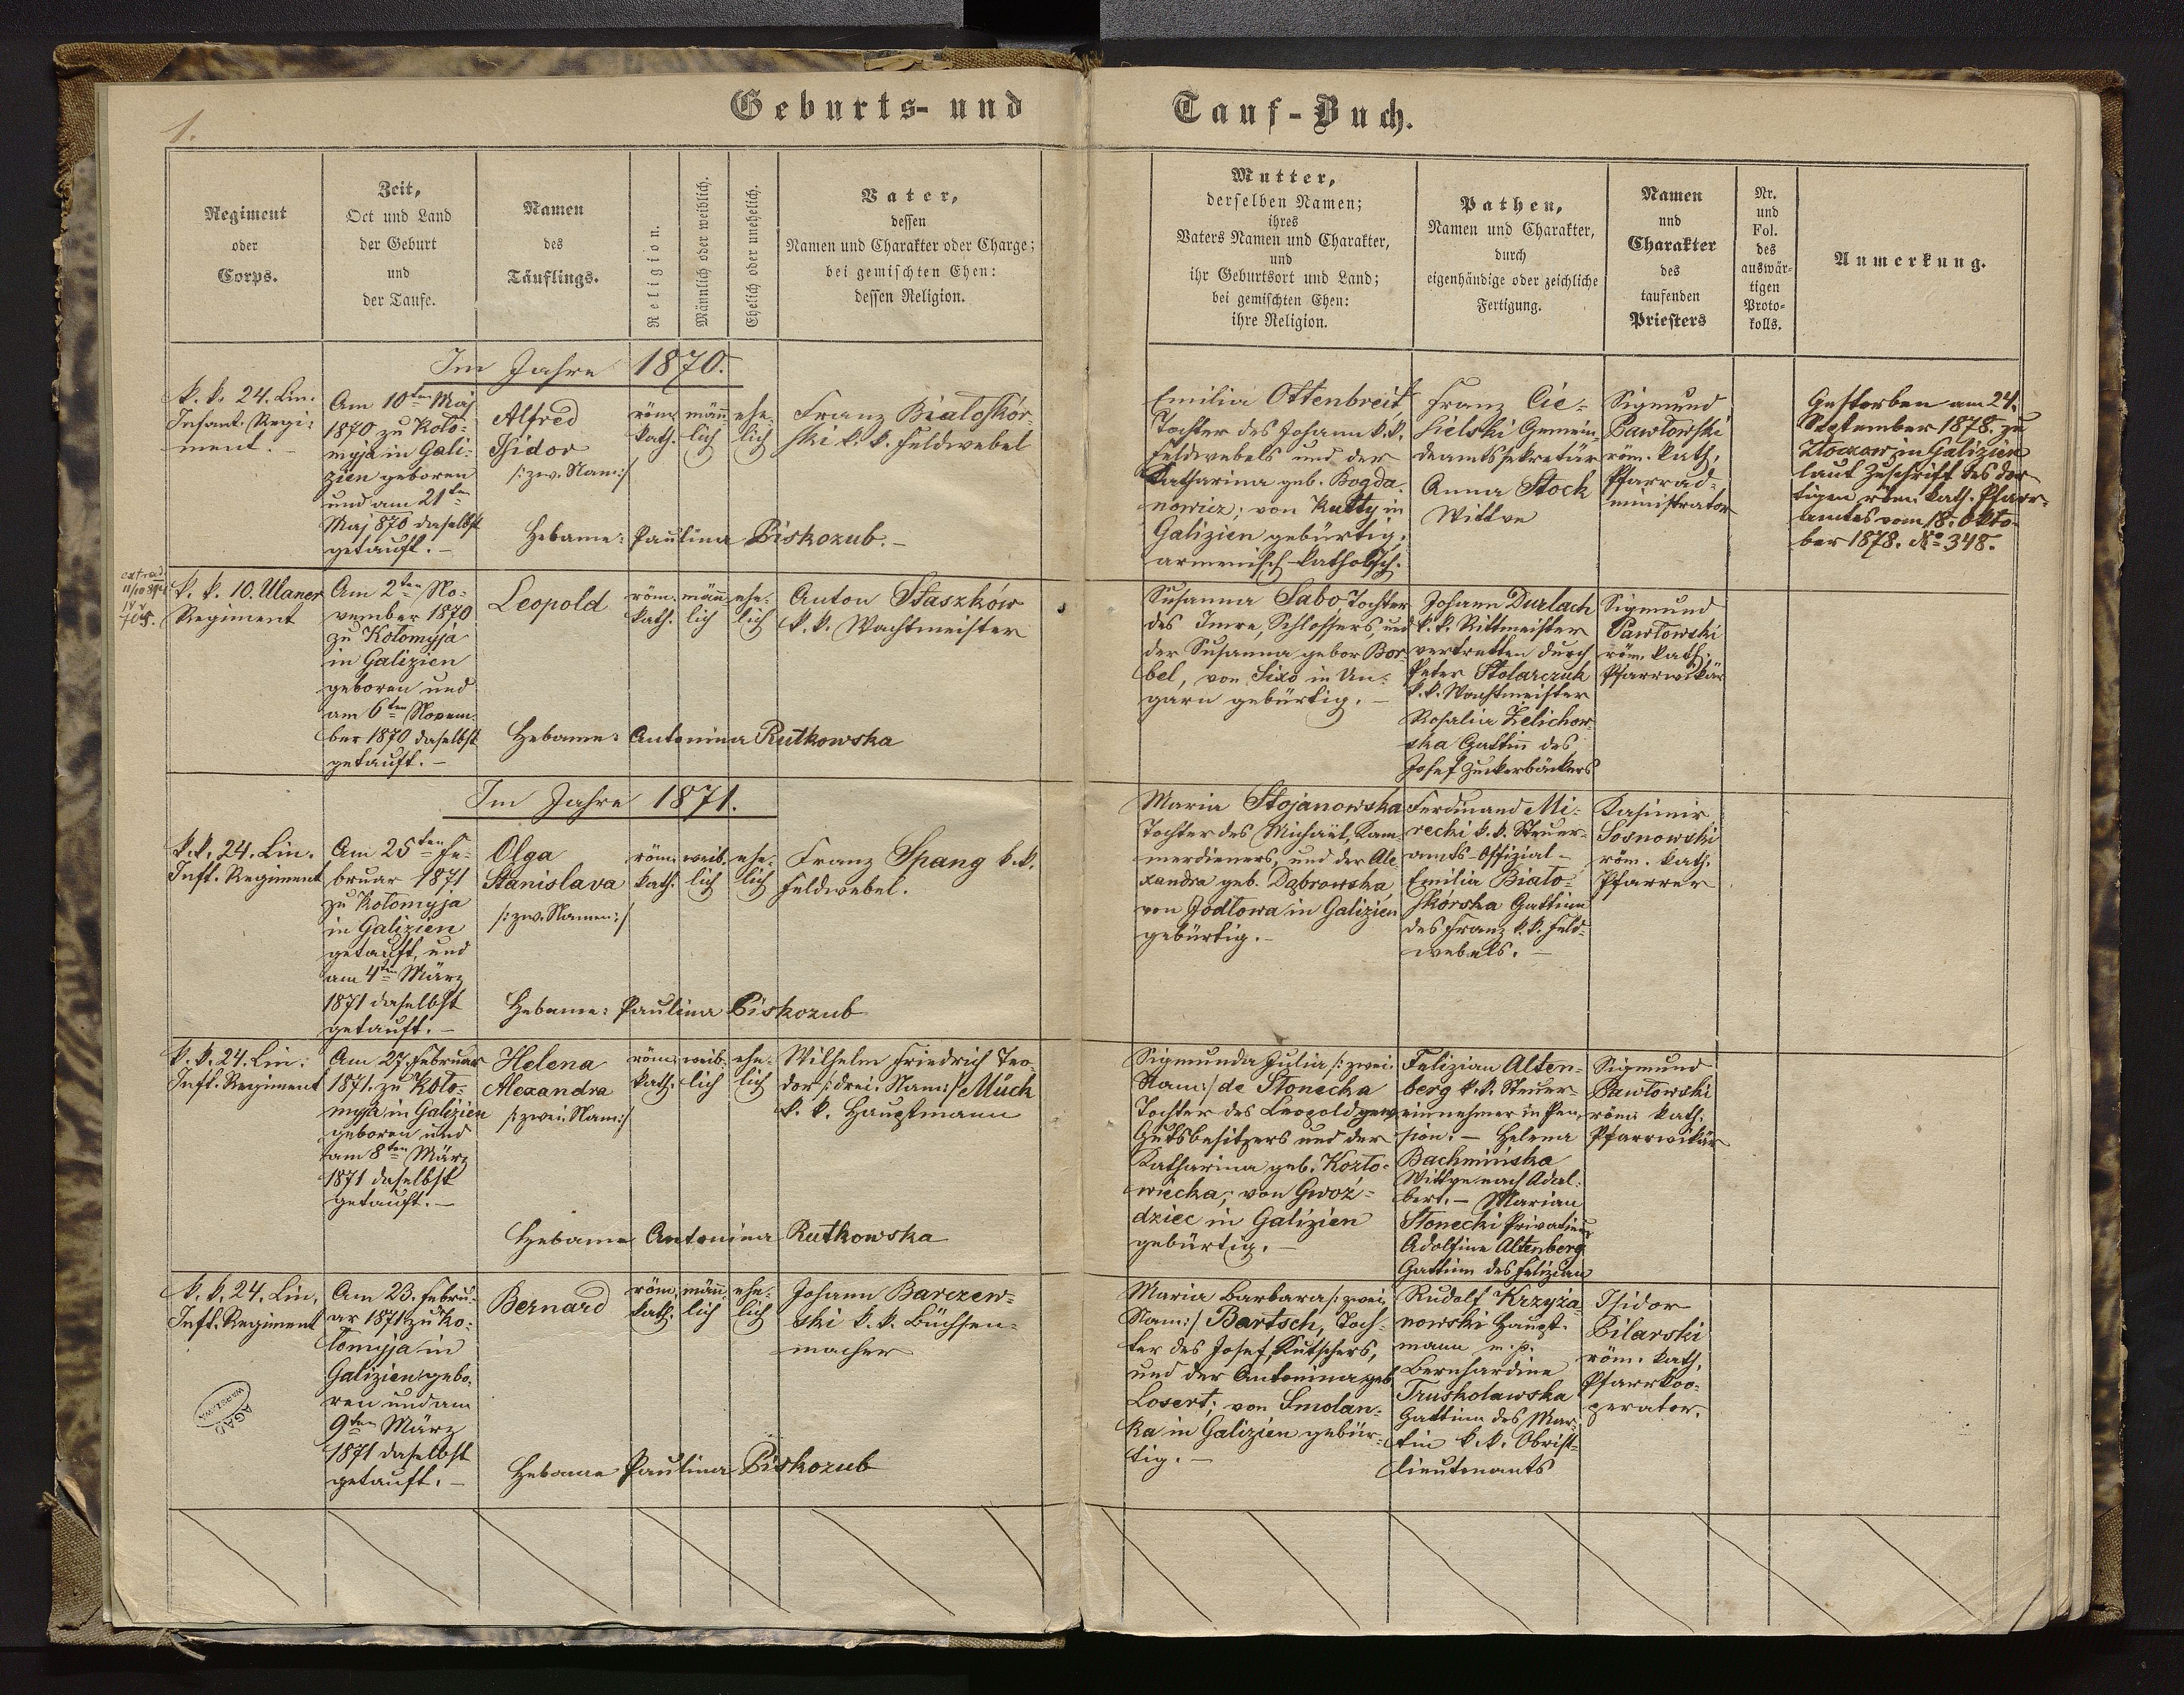 1.
Geburts- und Tauf-Buch.
Regiment
oder
Corps.
Zeit,
Ort und Land
der Geburt
und
der Taufe.
Namen
des
Täuflings.
Religion.
Männlich oder weiblich.
Ehelich oder unehelich.
Vater,
dessen
Namen und Charakter oder Charge;
bei gemischten Ehen:
dessen Religion.
Mutter,
derselben Namen;
ihres
Vaters Namen und Charakter,
und
ihr Geburtsort und Land;
bei gemischten Ehen:
ihre Religion.
Pathen,
Namen und Charakter,
durch
eigenhändige oder zeichliche
Fertigung.
Namen
und
Charakter
des
taufenden
Priesters
Nr.
und
Fol.
des
auswär-
tigen
Proto-
kolls.
Anmerkung.
Im Jahre 1870.
k. k. 24. Lin.
Infant. Regi-
ment. –
Am 10ten Maj
1870 zu Koło-
myja in Gali-
zien geboren
und am 21ten
Maj 870 daselbst
getauft. –
Alfred
Isidor
/: zw. Nam :/
röm.
kath.
männ-
lich
ehe-
lich
Franz Białoskór-
ski k. k. Feldwebel
Hebame: Paulina Biskozub. –
Emilia Ottenbreit,
Tochter des Johann k. k.
Feldwebels und der
Katharina geb. Bogda-
nowicz; von Kutty in
Galizien gebürtig;
armenisch-katholisch.
Franz Cie-
sielski Gemein-
deamtssekretär
Anna Stock
Wittwe
Sigmund
Pawłowski
röm. kath.
Pfarrad-
ministrator
Gestorben am 24.
September 1878. zu
Złoczow in Galizien
laut Zuschrift des dor-
tigen röm. kath. Pfarr-
amtes vom 18. Okto-
ber 1878. No 348.
extrad.
k. k. 10. Ulaner
Regiment
Am 2ten No-
vember 1870
zu Kołomyja
in Galizien
geboren und
am 6ten Novem-
ber 1870 daselbst
getauft. –
Leopold
röm.
kath.
männ-
lich
ehe-
lich
Anton Staszków
k. k. Wachtmeister
Hebame: Antonina Rutkowska
Susanna Sabo, Tochter
des Imre, Schlossers, und
der Susanna gebor Bor-
bel, von Sixo in Un-
garn gebürtig. –
Johann Durlach
k. k. Rittmeister
vertretten durch
Peter Stolarczuk
k. k. Wachtmeister
Rosalia Żelichow-
ska Gattin des
Josef Zuckerbäckers
Sigmund
Pawłowski
röm. kath.
Pfarrvikär
Im Jahre 1871.
k. k. 24. Lin.
Inft. Regiment
Am 25ten Fe-
bruar 1871
zu Kołomyja
in Galizien
getauft, und
am 4ten März
1871 daselbst
getauft. –
Olga
Stanislava
/: zw. Namen :/
röm.
kath.
weib-
lich
ehe-
lich
Franz Spang k. k.
Feldwebel.
Hebame: Paulina Biskozub
Maria Stojanowska
Tochter des Michaël, Kam-
merdieners, und der Ale-
xandra geb. Dąbrowska,
von Jodłowa in Galizien
gebürtig. –
Ferdinand Mi-
recki k. k. Steuer-
amts-Offizial –
Emilia Biało-
skórska Gattinn
des Franz k. k. Feld-
webels. –
Kasimir
Sosnowski
röm. kath.
Pfarrer
k. k. 24. Lin.
Inft. Regiment
Am 27. Februar
1871. zu Koło-
myja in Galizien
geboren und
am 8ten März
1871 daselbst
getauft. –
Helena
Alexandra
/: zwei Nam :/
röm.
kath.
weib-
lich
ehe-
lich
Wilhelm Friedrich Teo-
dor /: drei Nam :/ Mück
k. k. Hauptmann
Hebame Antonina Rutkowska
Sigmunda Julia /: zwei
Nam :/ de Słonecka
Tochter des Leopold gew.
Gutsbesitzers und der
Katharina geb. Kozło-
wiecka, von Gwoź-
dziec in Galizien
gebürtig. –
Felizian Alten-
berg k. k. Steuer-
einnehmer in Pen-
sion. – Helena
Bachmińska
Wittwe nach Adal-
bert. – Marian
Słonecki Privatier
Adolfine Altenberg
Gattinn des Felizian
Sigmund
Pawłowski
röm. kath.
Pfarrvikär
k. k. 24. Lin.
Inft. Regiment
Am 23. Febru-
ar 1871 zu Ko-
łomyja in
Galizien gebo-
ren und am
9ten März
1871 daselbst
getauft. –
Bernard
röm.
kath.
männ-
lich
ehe-
lich
Johann Barczew-
ski k. k. Büchsen-
macher
Hebame Paulina Biskozub
Maria Barbara /: zwei
Nam :/ Bartsch, Toch-
ter des Josef, Kutschers,
und der Antonina geb.
Losert; von Smolan-
ka in Galizien gebür-
tig. –
Rudolf Krzyża-
nowski Haupt-
mann m. p.
Bernhardine
Truskolawska
Gattinn des Mar-
tin k. k. Obrist-
lieutenants
Isidor
Pilarski
röm. kath.
Pfarrkoo-
perator.
AGAD
WARSZAWA